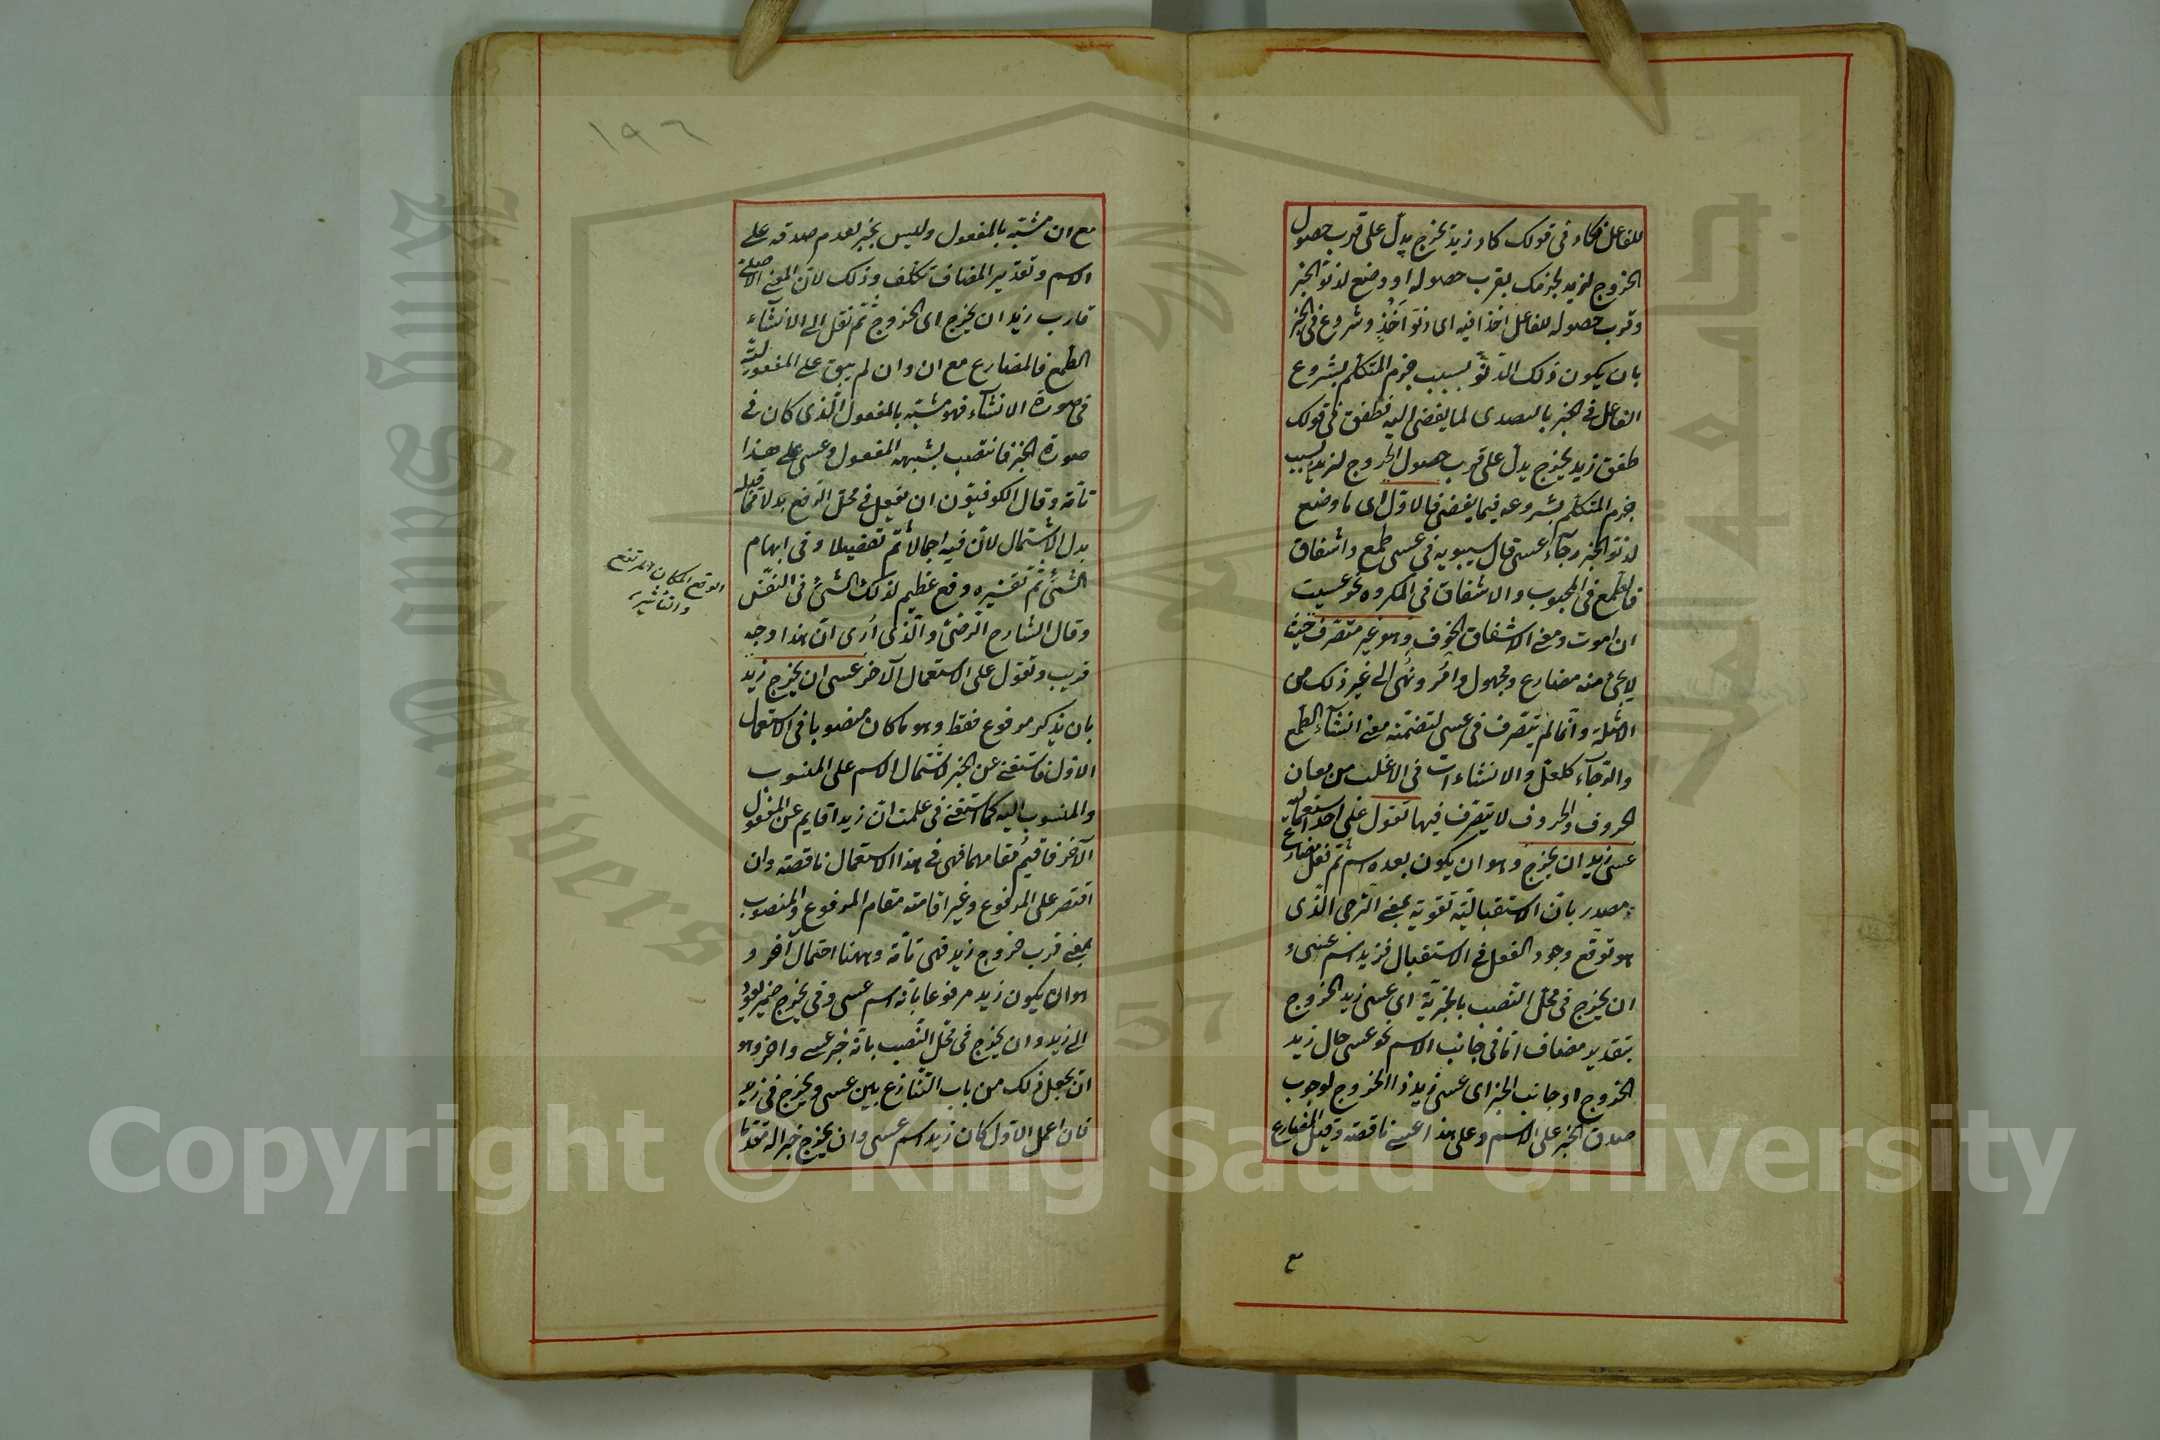 للفاعل فكاد في قولك كاد زيد يخرج يدل على قرب حصول
الخروج لزيد لجزمك بقرب حصوله او وضع لدنو الخبر
وقرب حصوله للفاعل اخذا فيه اى دنو اخذ وشروع في الخبر
بان يكون ذلك الدنو بسبب جزم المتكلم بشروع
الفاعل في الخبر بالتصدى لما يفضى اليه فطفق في قولك
طفق زيد يخرج يدل على قرب حصول الخروج لزيد بسبب
جزم المتكلم بشروعه فيما يفضى فالاول اى ما وضع
لدنو الخبر رجآء عسى قال سيبويه في عسى طمع واشفاق
فالطمع في المحبوب والاشفاق في المكروه نحو عسيت
ان اموت ومعنى الاشفاق الخوف وهو غير متصرف حيث
لا يجئ منه مضارع ومجهول وامر ونهى الى غير ذلك من
الامثلة وانما لم يتصرف في عسى لتضمنه معنى انشآء الطمع
والرجآء كلعل والانشاءات في الاغلب من معان
الحروف والحروف لا يتصرف فيها تقول على احد استعماليه
عسى زيد ان يخرج وهو ان يكون بعده اسم ثم فعل مضارع
مصدر بان الاستقبالية تقوية لمعنى الترجى الذى
هو توقع وجود الفعل في الاستقبال فزيد اسم عسى و
ان يخرج في محل النصب بالخبرية اى عسى زيد الخروج
بتقدير مضاف اما في جانب الاسم نحو عسى حال زيد
الخروج او جانب الخبر اى عسى زيد ذا الخروج لوجوب
صدق الخبر على الاسم وعلى هذا عسى ناقصة وقيل المضارع
مع
١٩٦
مع ان مشبه بالمفعول وليس بخبر لعدم صدقه على
الاسم وتقدير المضاف تكلف وذلك لان المعنى الاصلى
قارب زيد ان يخرج اى الخروج ثم نقل الى الانشآء
الطمع فالمضارع مع ان وان لم يبق على المفعولية
في صورة الانشآء فهو مشبه بالمفعول الذى كان في
صورة الخبر فانتصب لشبهه المفعول وعسى على هذا
تامة وقال الكوفيون ان يفعل في محل الرفع بدلا مما قبله
بدل الاشتمال لان فيه اجمالا ثم تفصيلا وفى ابهام
الشئ ثم تفسيره وقع عظيم لذلك الشئ في النفس
وقال الشارح الرضى والذى ارى ان هذا وجه
قريب وتقول على الاستعمال الآخر عسى ان يخرج زيد
بان يذكر مرفوع فقط وهو ما كان منصوبا في الاستعمال
الاول فاستغنى عن الخبر لاشتمال الاسم على المنسوب
والمنسوب اليه كما استغنى في علمت ان زيدا قايم عن المفعول
الآخر فاقيم مقامهما فهى في هذا الاستعمال ناقصة وان
اقتصر على المرفوع وغير اقامته مقام المرفوع والمنصوب
بمعنى قرب خروج زيد فهى تامة وههنا احتمال آخر و
هو ان يكون زيد مرفوعا بانه اسم عسى وفى يخرج ضمير يعود
الى زيد وان يخرج في محل النصب بانه خبر عسى وآخر وهو
ان يجعل ذلك من باب التنازع بين عسى ويخرج في زيد
فان اعمل الاول كان زيد اسم عسى وان يخرج خبرا له مقدما
الوقع المكان المرتفع
والتأثير
Copyright © King Saud University